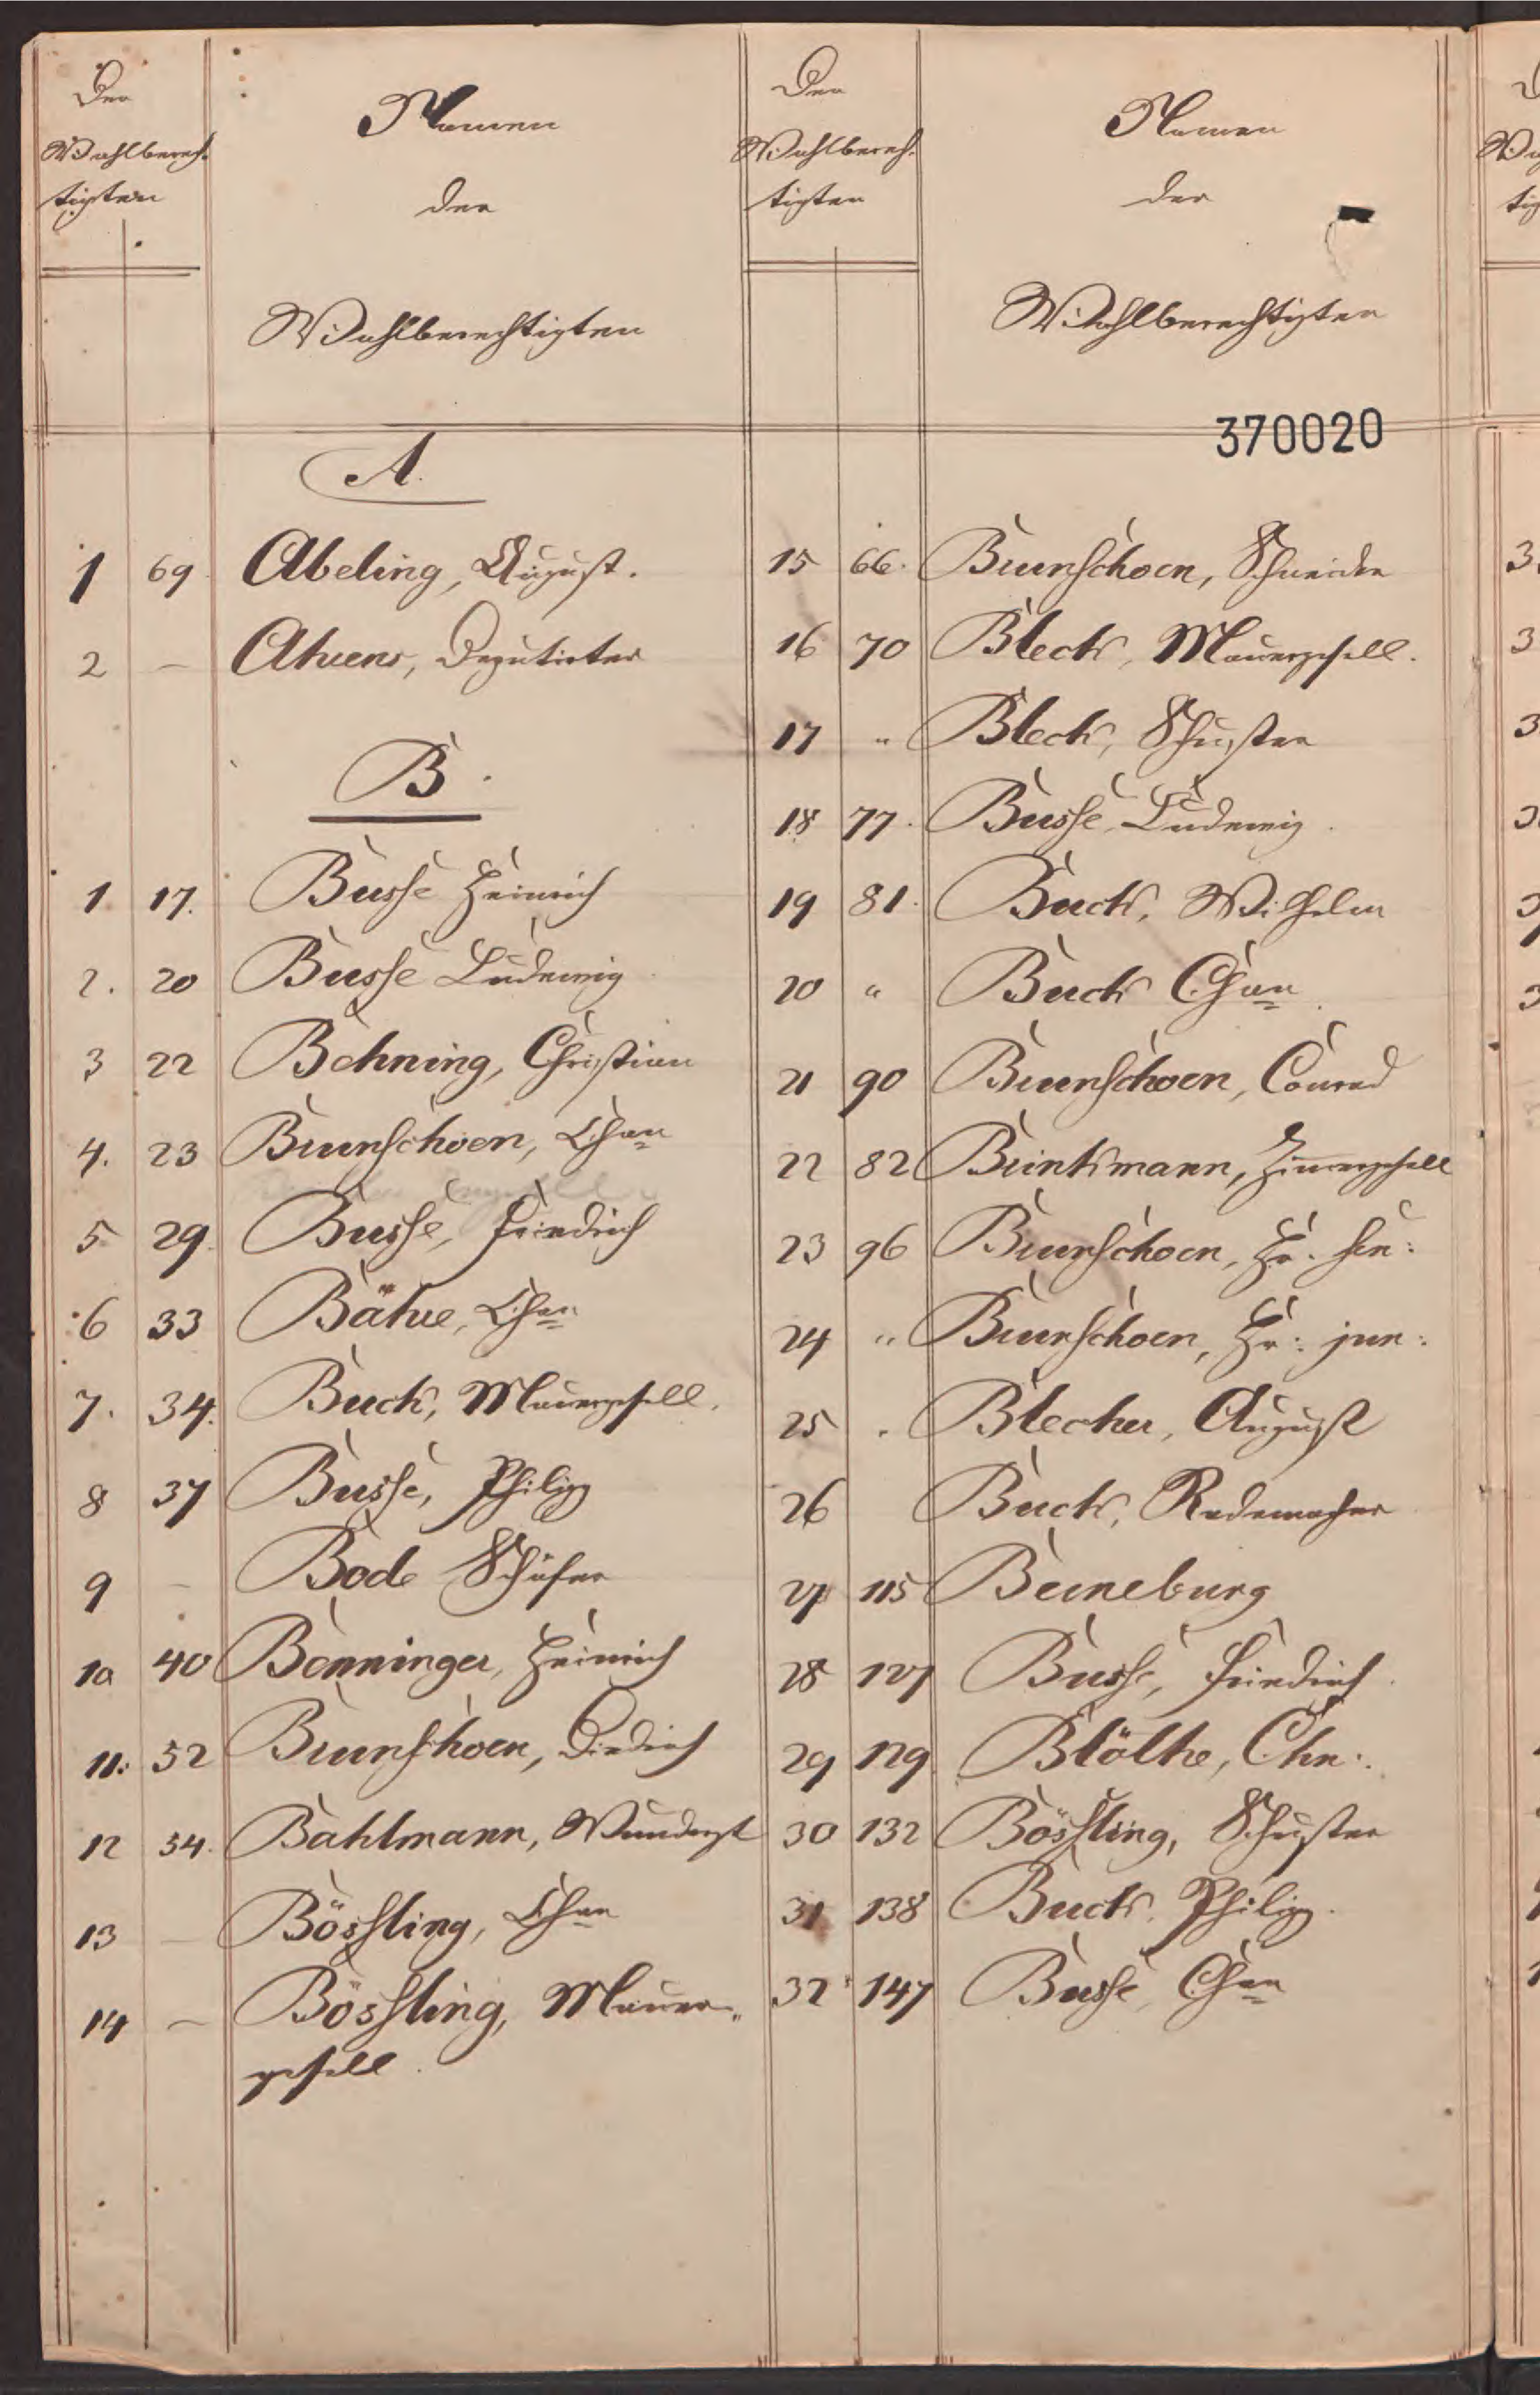 Der
Wahlberech-
tigten
Namen
der
Wahlberechtigten
A.
1 69 Abeling, August.
2 — Ahrens, Deputirter
B.
1 17. Busse Heinrich
2. 20 Busse Ludewig
3 22 Behning, Christian
4. 23 Brunschoen, Chan
5 29. Busse, Friedrich
6 33 Bähre, Chan
7. 34. Buck, Mauergesell.
8 37 Busse, Philipp
9 — Bode Schäfer
10 40 Bonninger, Heinrich
11. 52 Brunschoen, Diedrich
12 54. Bahlmann, Wundarzt
13 — Bössling, Chan
14 — Bössling, Mauer-
gesell.
Der
Wahlberech-
tigten
Namen
der
Wahlberechtigten
370020
15 66. Brunschoen, Schneider
16 70 Bleck, Mauergesell.
17 " Bleck, Schuster
18 77. Busse, Ludewig.
19 81. Buck, Wilhelm
20 " Buck Chan
21 90 Brunschoen, Conrad
22 82 Brinkmann, Zimergesell
23 96 Brunschoen, Hr. sen:
24 " Brunschoen, Hr: jun:
25 " Blecher, August
26 Buck, Rademacher
27 115 Beineburg
28 127 Busse, Friedrich.
29 129 Blöthe, Chr:.
30 132 Bössling, Schuster
31 138 Buck, Philipp.
32 147 Busse, Chan